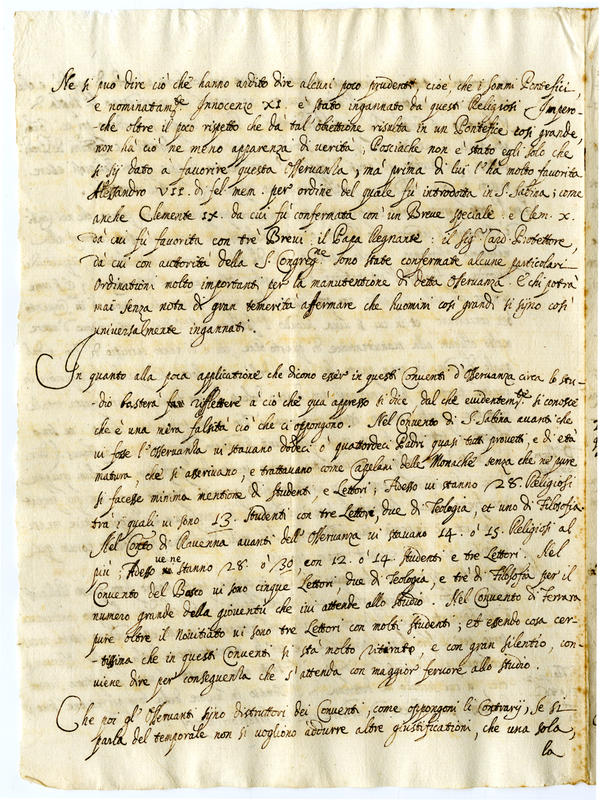 Ne si può dire ciò che hanno ardito dire alcuni poco prudenti, cioè che i sommi Pontefici,
e nominatam.te Innocenzo XI. è stato ingannato da questi Religiosi Impero-
-che oltre il poco rispetto che dà tal'obiettione risulta in un Pontefice così grande,
non hà ciò ne meno apparenza di verità; Posciache non è stato egli solo che
si sij dato a favorire questa Osservanza, mà prima di lui l'hà molto favorita
Alessandro VII. di fel. mem. per ordine del quale fù introdotta in S. Sabina; come
anche Clemente IX. da cui fù confermata con un Breve speciale: e Clem. X.
dà cui fù favorita con trè Brevi: il Papa Regnante: il Sig.r Card. Protettore,
dà cui con autorità della S. Congreg.ne sono state confermate alcune particolari
ordinationi molto importanti per la manutentione di detta Osservanza. E chi potrà
mai senza nota di gran temerità affermare che huomini così grandi si sijno così
universalmente ingannati.
In quanto alla poca applicatione che dicono esser in questi Conventi d'Osservanza circa lo stu-
dio basterà far riflettere à ciò che quà appresso si dice dal che evidentem.te si conosce
che è una mera falsità ciò che ci oppongono. Nel Convento di S. Sabina avanti che
vi fosse l'Osservanza vi stavano dodeci ò quattordeci Padri quasi tutti provetti, e di età
matura, che si asserivano, e trattavano come Capelani delle Monache senza che ne pure
si facesse minima mentione di studenti, e Lettori; Adesso vi stanno 28. Religiosi
trà i quali vi sono 13. studenti con tre Lettori, due di Teologia, et uno di Filosofia.
Nel Con.to di Ravenna avanti dell'Osservanza vi stavano 14. ò 15. Religiosi al
più; Adesso ve ne stanno 28. ò 30, con 12. ò 14. studenti e tre Lettori. Nel
Convento del Bosco vi sono cinque Lettori, due di Teologia, e trè di Filosofia per il
numero grande della gioventù che ivi attende allo studio. Nel Convento di Ferrara
pure oltre il Novitiato vi sono tre Lettori con molti studenti; et essendo cosa cer-
-tissima che in questi Conventi si stà molto ritirato, e con gran silentio, con-
viene dire per conseguenza che s'attenda con maggior fervore allo studio.
Che noi gl'Osservanti sijno distruttori dei Conventi, come oppongono li Contrarij, se si
parla del temporale non si vogliono addurre altre giustificationi, che una sola,
la